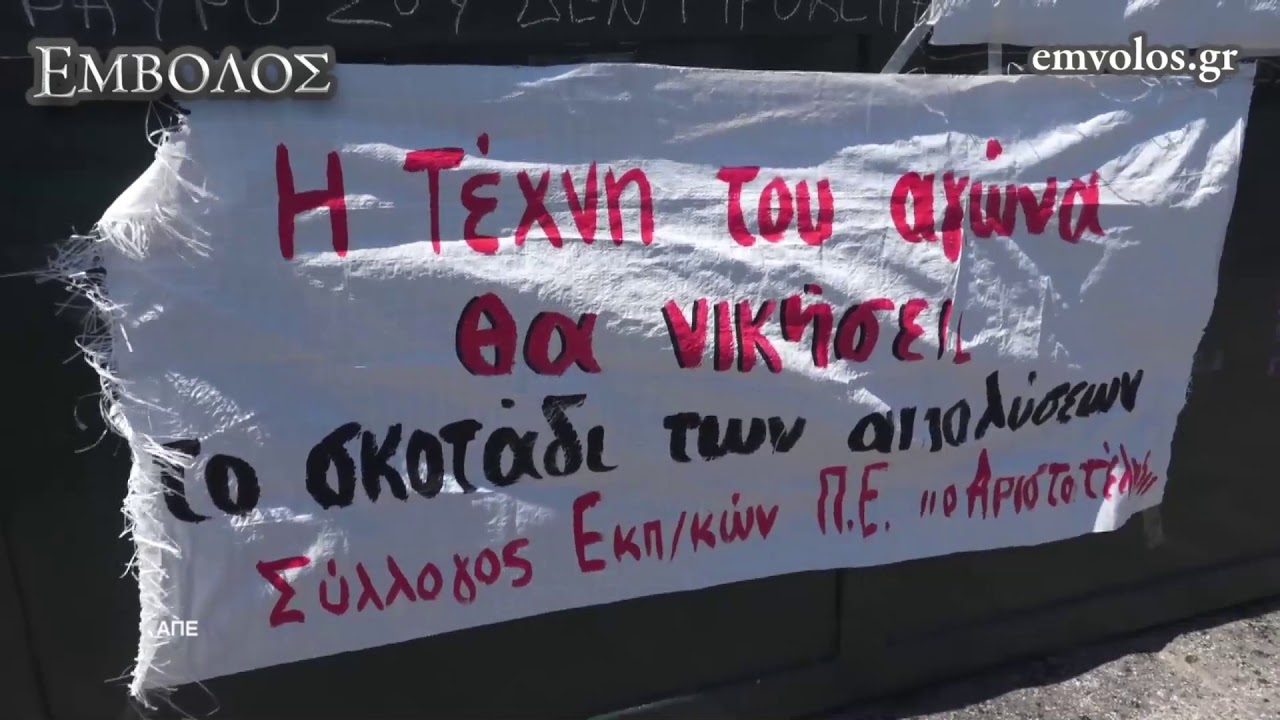 ΣΟΥ ΔΕΝ
ΕΜΒΟΛΟΣ
emvolos.gr
Η Τέχνη του αγώνα
θα νικήσει
το σκοτάδι των απολύσεων
Σύλλογος Εκπ/κών Π.Ε. "ο Αριστοτέλης"
ΑΠΕ